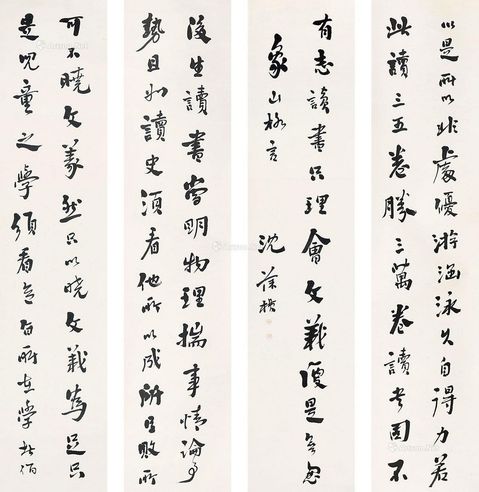 後生讀書當明物理揣事情論事
勢且如讀史須看他所以成所以敗所
以是所以非處優游涵泳久自得力若
此讀三五卷勝三萬卷讀書固不
可不曉文義然只以曉文義為足只
是兒童之學須看意旨所在學者倘
有志讀書只理會文義便是無
象山格言
沈葆楨